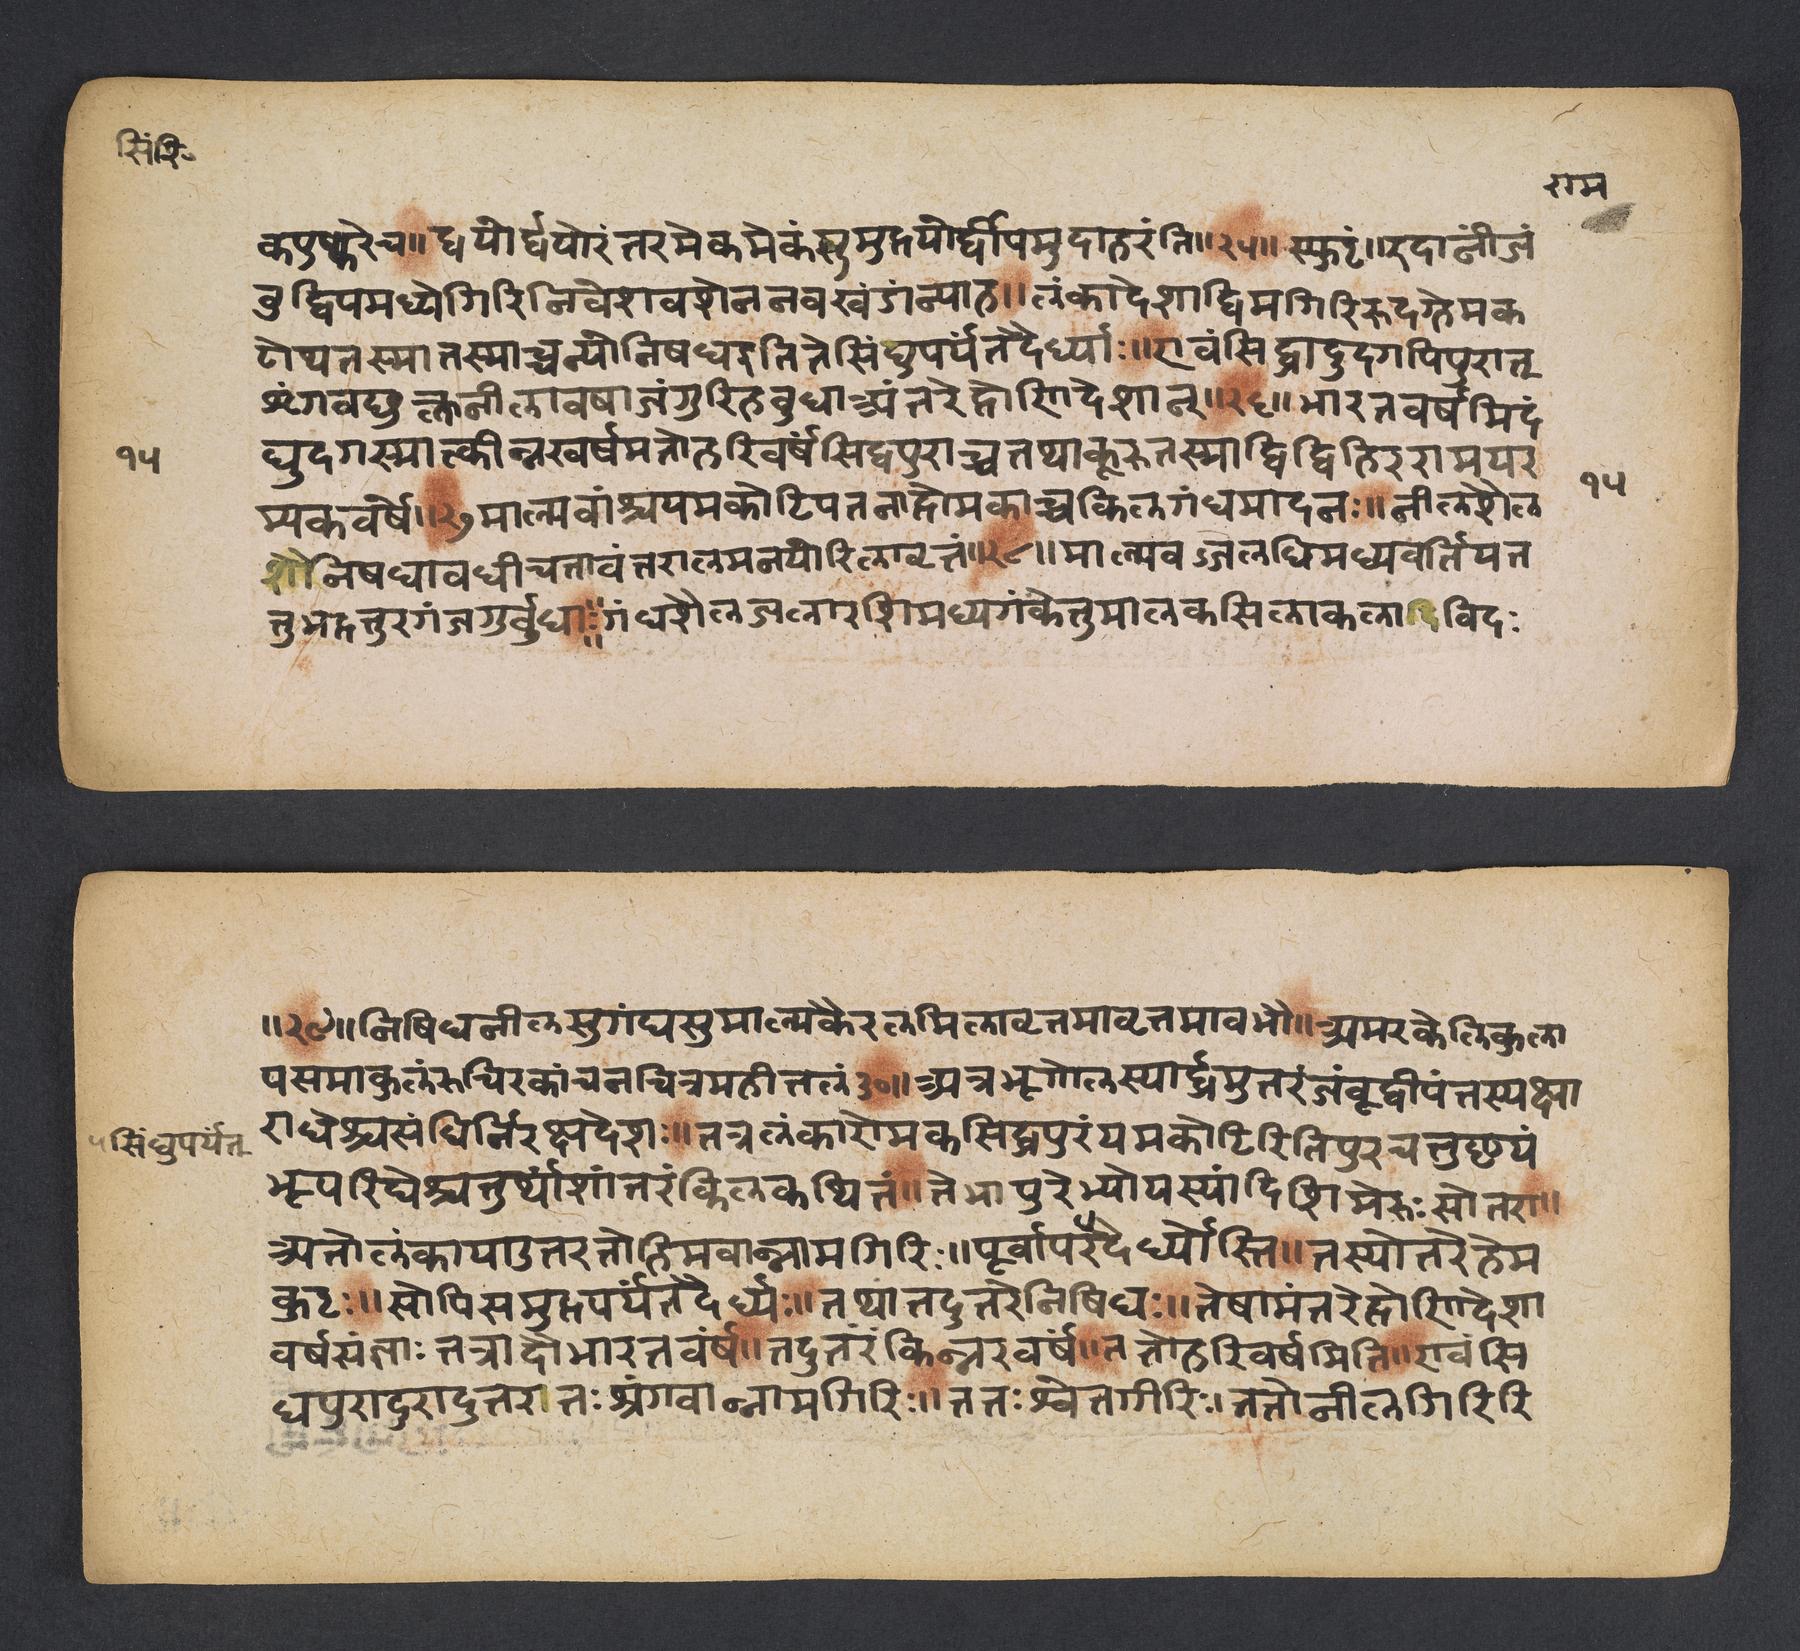 सिंशि॰
राम
कपुष्करेच॥ द्वयोर्द्वयोरंतरमेकमेकंसमुद्रयोर्द्वीपमुदाहरंति॥२५॥ स्फुटं॥इदानींजं
वुद्विपमध्येगिरिनिवेशवशेननवखंडान्याह॥ लंकादेशाद्धिमगिरिरुदग्हेमकू
टोथतस्मात्तस्माच्चन्योनिषधइतितेसिंधुपर्यंतदैर्घ्याः॥एवंसिद्धादुदगपिपुरात्
शृंगवछुक्लनीलावर्षाजंगुरिहवुधाअंतरेद्रोणिदेशान्॥२६॥ भारतवर्षमिदं
ह्युदगस्मात्कीन्नरवर्षमतोहरिवर्षंसिद्धपुराच्चतथाकूरुतस्माद्विद्विहिररामयर
म्यकवर्षे॥२७माल्यवांश्चयमकोटिपतनाद्रोमकाच्चकिलगंधमादनः॥ नीलशैल
शौनिषधावधीचतावंतरालमनयोरिलावृत्तं॥२८॥ माल्यवज्जलधिमध्यवर्तियत
त्तुभद्रतुरगंजगुर्वुधाः॥गंधशैलजलाराशिमध्यगंकेतुमालकसिलाकलादिविदः
१५
१५
॥२९॥निषिधनीलसुगंधसुमाल्यकैरलमिलावृत्तमावृत्तमावभौ॥ अमरकेलिकुला
यसमाकुलंरुचिरकांचनचित्रमहीतलं३०॥ अत्रभूगोलस्यार्द्धमुत्तरंजंवूद्वीपंतस्यक्षा
राधेश्चसंधिर्निरक्षदेशः॥ तत्रलंकारोमकसिद्धपुरंयमकोटिरितिपुरचत्तुष्टयं
भूपरिधेश्चतुर्थांशांतरंकिलकथितं॥ तेभापुरेभ्योयस्यांदिशिमेरुःसोत्तरा॥
अतोलंकायाउत्तरतोहिमवान्नामगिरिः॥पूर्वापरदैर्घ्योस्ति॥ तस्योत्तरेहेम
कुटः॥ सोपिसमुद्रपर्यंतदैर्घ्यः॥ तथांतदुत्तरेनिषिधः॥ तेषामंतरेद्रोणिदेशा
वर्षसंज्ञाः तत्रादौभारतवर्षं॥ तदुत्तरंकिन्नरवर्षं॥ ततोहरिवर्षमिति॥ एवंसि
धपुरादुरादुत्तरातः श्रंगवान्नामगिरिः॥ ततः श्वेतगीरिः। ततोनीलगिरिरि
५सिंधुपर्यंत